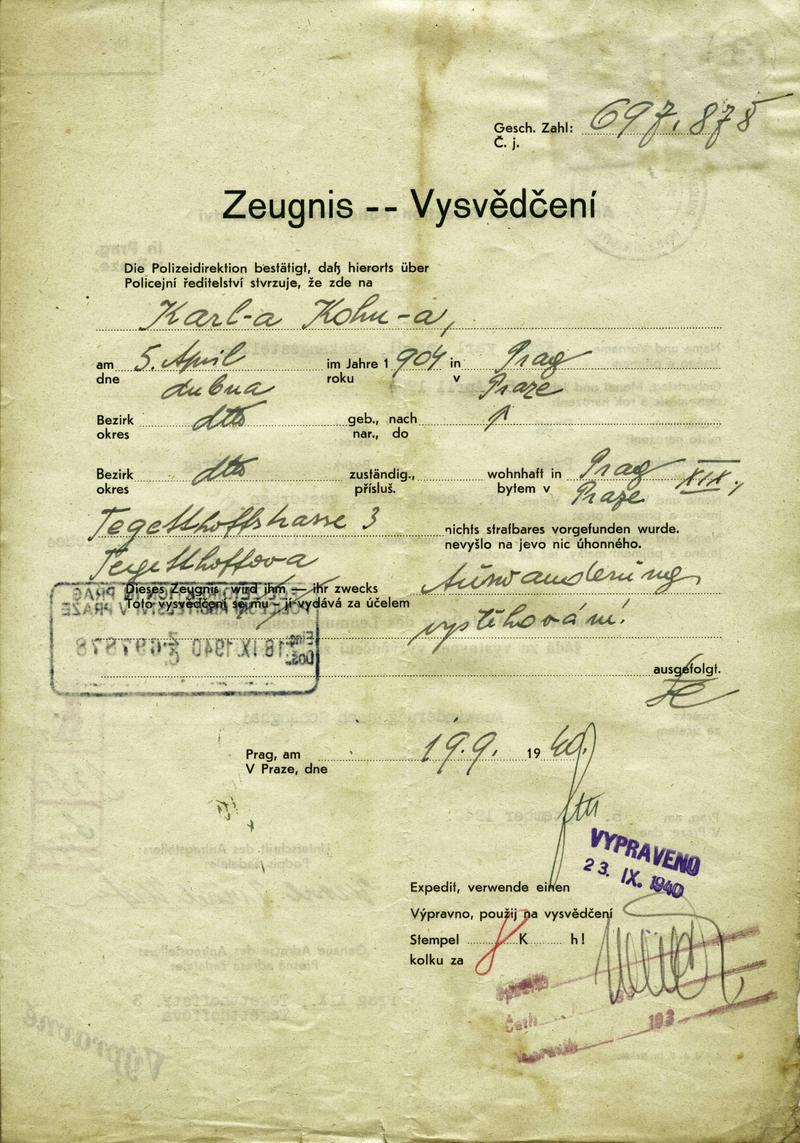 Gesch. Zahl: 697.878
Č. j.
Zeugnis -- Vysvědčení
Die Polizeidirektion bestätigt, daß hierorts über
Policejní ředitelství stvrzuje, že zde na
Karl-a Kohn-a,
am 5. April im Jahre 1904 in Prag
dne dubna roku v Praze
Bezirk dtto geb., nach
okres nar., do
Bezirk dtto zuständig., wohnhaft in Prag XIX.,
okres přísluš. bytem v Praze
Tegetthoffstrasse 3 nichts strafbares vorgefunden wurde.
nevyšlo na jevo nic úhonného.
Tegetthoffova
Dieses Zeugnis wird ihm — ihr zwecks Auswanderung
Toto vysvědčení se mu – jí vydává za účelem
vystěhování.
ausgefolgt.
Prag, am 19.9. 1940.
V Praze, dne
VYPRAVENO
23. IX. 1940
Expedit, verwende einen
Výpravno, použij na vysvědčení
Stempel 8 K h!
kolku za
193